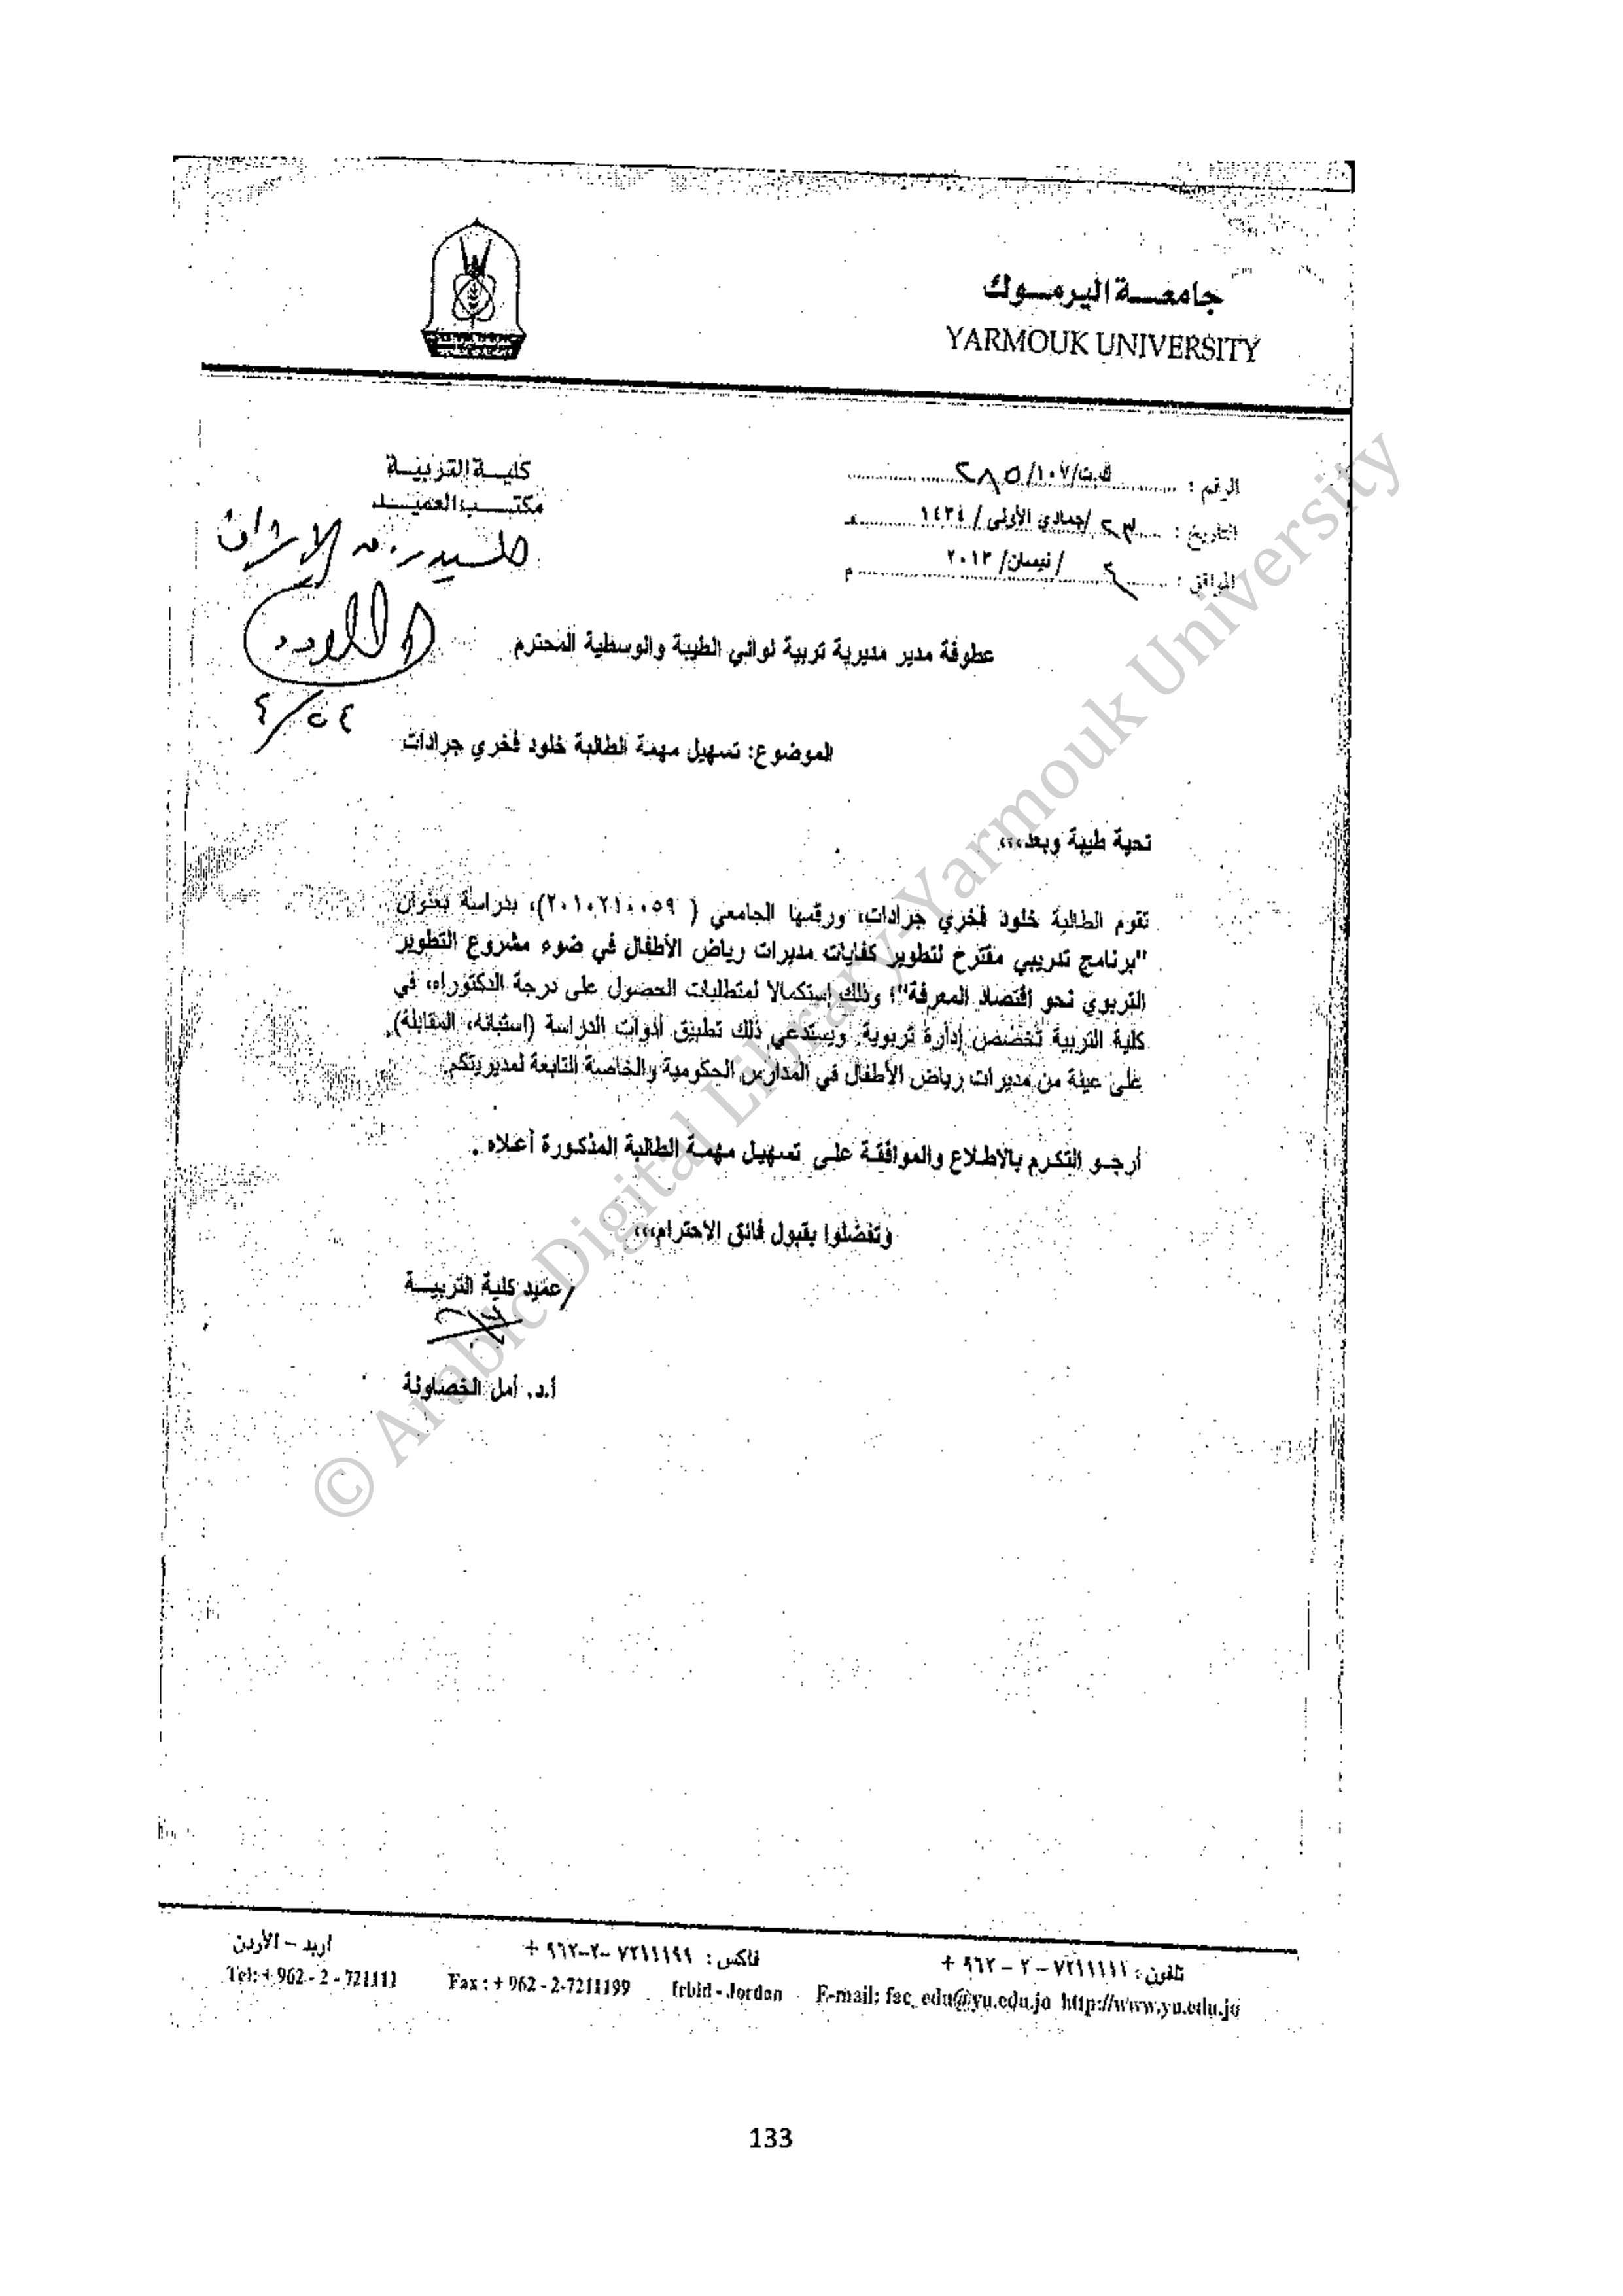 جامعة اليرموك
YARMOUK UNIVERSITY
كلية التربية
مكتب العميد
الرقم : ك.ت/١٠٧/٢٨٥
التاريخ : ٢٣ /جمادي الأولى / ١٤٣٤ هـ
الموافق : ٤ / نيسان/ ٢٠١٣ م
عطوفة مدير مديرية تربية لوائي الطيبة والوسطية المحترم
الموضوع: تسهيل مهمة الطالبة خلود فخري جرادات
تحية طيبة وبعد،،،
تقوم الطالبة خلود فخري جرادات، ورقمها الجامعي ( ٢٠١٠٢١٠٠٥٩)، بدراسة بعنوان
"برنامج تدريبي مقترح لتطوير كفايات مديرات رياض الأطفال في ضوء مشروع التطوير
التربوي نحو اقتصاد المعرفة"؛ وذلك إستكمالا لمتطلبات الحصول على درجة الدكتوراه، في
كلية التربية تخصص إدارة تربوية. ويستدعي ذلك تطبيق أدوات الدراسة (استبانه، المقابلة).
على عينة من مديرات رياض الأطفال في المدارس الحكومية والخاصة التابعة لمديريتكم.
أرجو التكرم بالاطلاع والموافقة على تسهيل مهمة الطالبة المذكورة أعلاه .
وتفضلوا بقبول فائق الاحترام،،،
/عميد كلية التربية
أ.د. أمل الخصاونة
تلفون : ٧٢١١١١١ – ٢ – ٩٦٢ + فاكس : ٧٢١١١٩٩ –٢–٩٦٢ + اربد – الأردن
Tel: + 962 - 2 - 721111 Fax : + 962 - 2-7211199 Irbid - Jordan E-mail: fac_edu@yu.edu.jo http://www.yu.edu.jo
133
© Arabic Digital Library-Yarmouk University